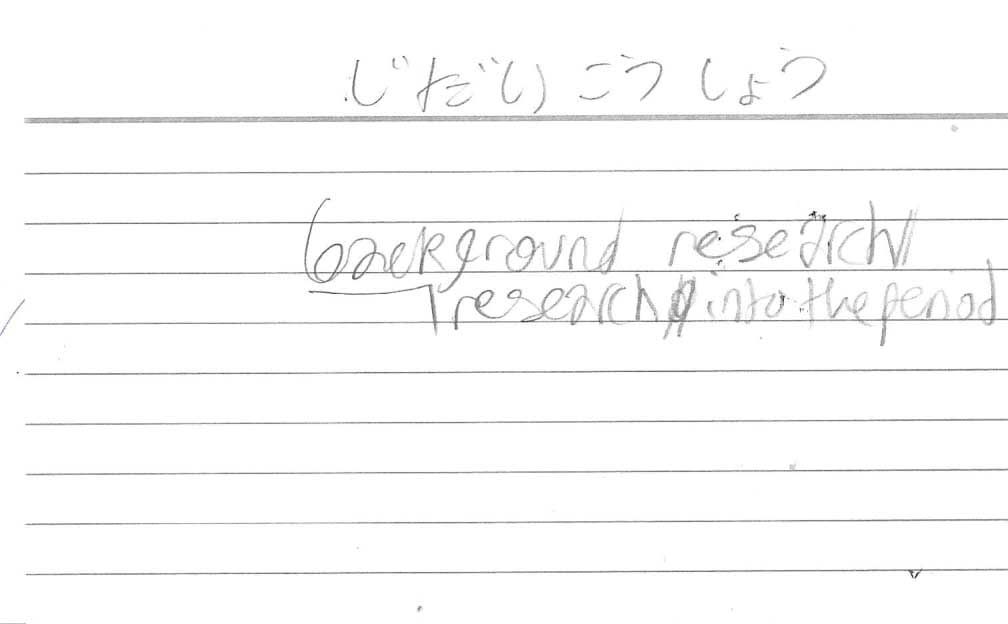 じだいこうしょう
background research
research into the period